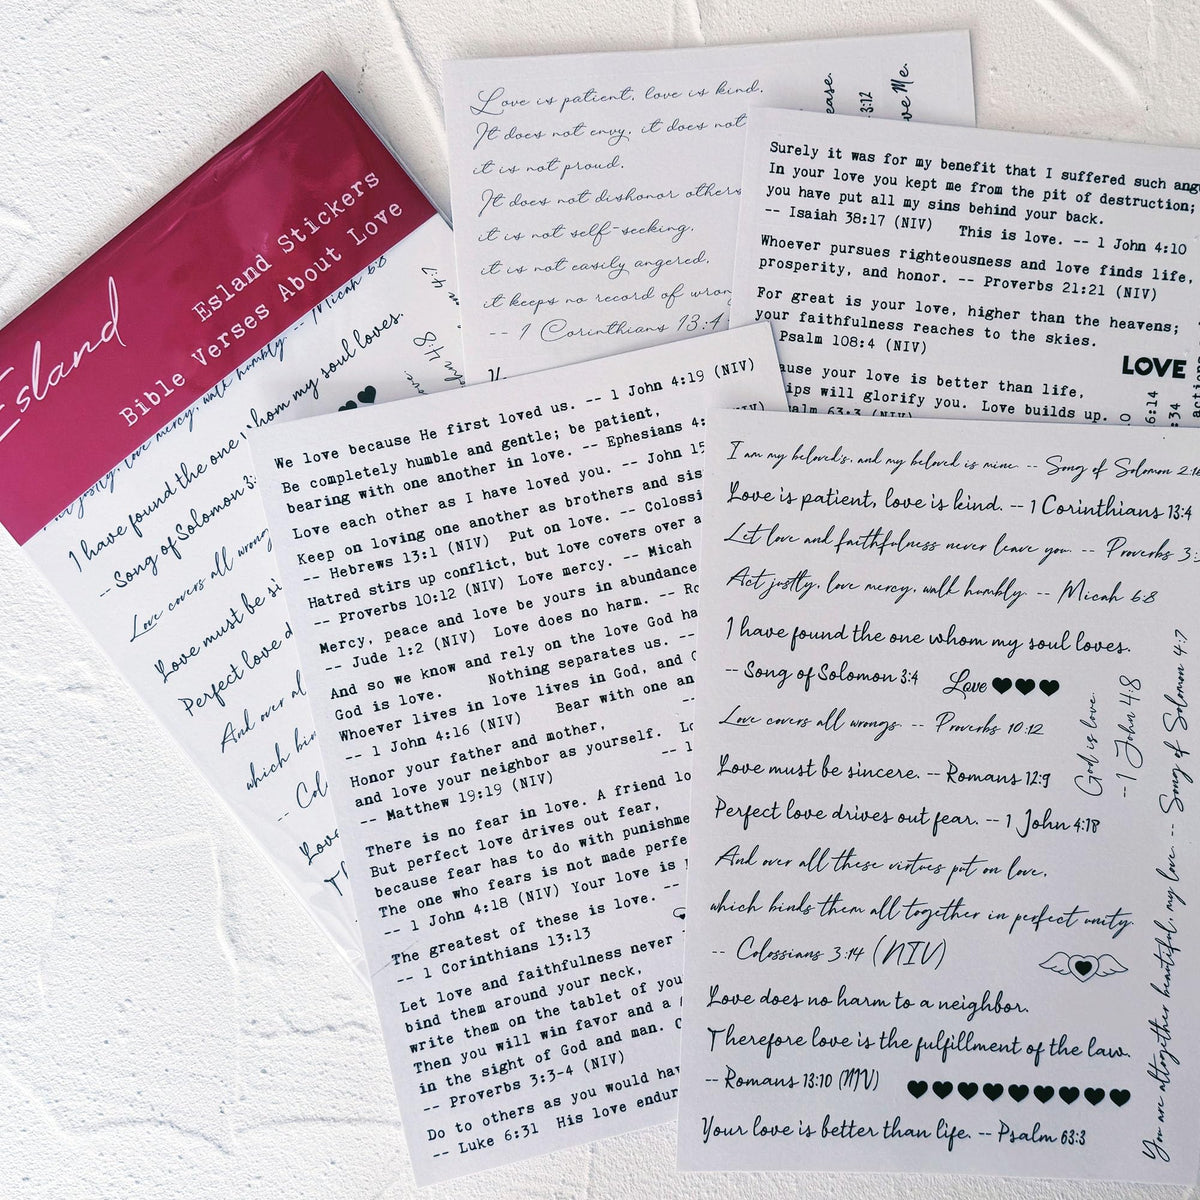 Esland
Esland Stickers
Bible Verses About Love
-- Micah 6:8
Act justly, love mercy, walk humbly.
I have found the one whom my soul loves.
-- Song of Solomon 3:
Love covers all wrong
Love must be si
Perfect love d
And over al
which bin
-- Col
Love
Th
4:7
John 4:8
love.
Love is patient, love is kind.
It does not envy, it does not
it is not proud.
It does not dishonor others
it is not self-seeking,
it is not easily angered,
it keeps no record of wrong
-- 1 Corinthians 13:4
ease.
3:12
ve Me.
Surely it was for my benefit that I suffered such angu
In your love you kept me from the pit of destruction;
you have put all my sins behind your back.
-- Isaiah 38:17 (NIV) This is love. -- 1 John 4:10
Whoever pursues righteousness and love finds life,
prosperity, and honor. -- Proverbs 21:21 (NIV)
For great is your love, higher than the heavens;
your faithfulness reaches to the skies.
Psalm 108:4 (NIV)
LOVE
ause your love is better than life,
ips will glorify you. Love builds up.
alm 63:3 (NIV)
6:14
:34
action
We love because He first loved us. -- 1 John 4:19 (NIV)
Be completely humble and gentle; be patient,
bearing with one another in love. -- Ephesians 4:
Love each other as I have loved you. -- John 15
Keep on loving one another as brothers and sis
-- Hebrews 13:1 (NIV) Put on love. -- Colossi
Hatred stirs up conflict, but love covers over a
-- Proverbs 10:12 (NIV) Love mercy. -- Micah
Mercy, peace and love be yours in abundance
-- Jude 1:2 (NIV) Love does no harm. -- Ro
And so we know and rely on the love God ha
God is love. Nothing separates us. --
Whoever lives in love lives in God, and G
-- 1 John 4:16 (NIV) Bear with one an
Honor your father and mother,
and love your neighbor as yourself. Lo
-- Matthew 19:19 (NIV) -- 1
There is no fear in love. A friend lo
But perfect love drives out fear,
because fear has to do with punishme
The one who fears is not made perfe
-- 1 John 4:18 (NIV) Your love is
The greatest of these is love. --
-- 1 Corinthians 13:13
Let love and faithfulness never
bind them around your neck,
write them on the tablet of you
Then you will win favor and a
in the sight of God and man. C
-- Proverbs 3:3-4 (NIV)
Do to others as you would hav
-- Luke 6:31 His love endur
I am my beloved's, and my beloved is mine. -- Song of Solomon 2:16
Love is patient, love is kind. -- 1 Corinthians 13:4
Let love and faithfulness never leave you. -- Proverbs 3:3
Act justly, love mercy, walk humbly. -- Micah 6:8
I have found the one whom my soul loves.
-- Song of Solomon 3:4 Love
Love covers all wrongs. -- Proverbs 10:12
Love must be sincere. -- Romans 12:9
Perfect love drives out fear. -- 1 John 4:18
And over all these virtues put on love,
which binds them all together in perfect unity.
-- Colossians 3:14 (NIV)
Love does no harm to a neighbor.
Therefore love is the fulfillment of the law.
-- Romans 13:10 (NIV)
Your love is better than life. -- Psalm 63:3
God is love.
-- 1 John 4:8
You are altogether beautiful, my love. -- Song of Solomon 4:7